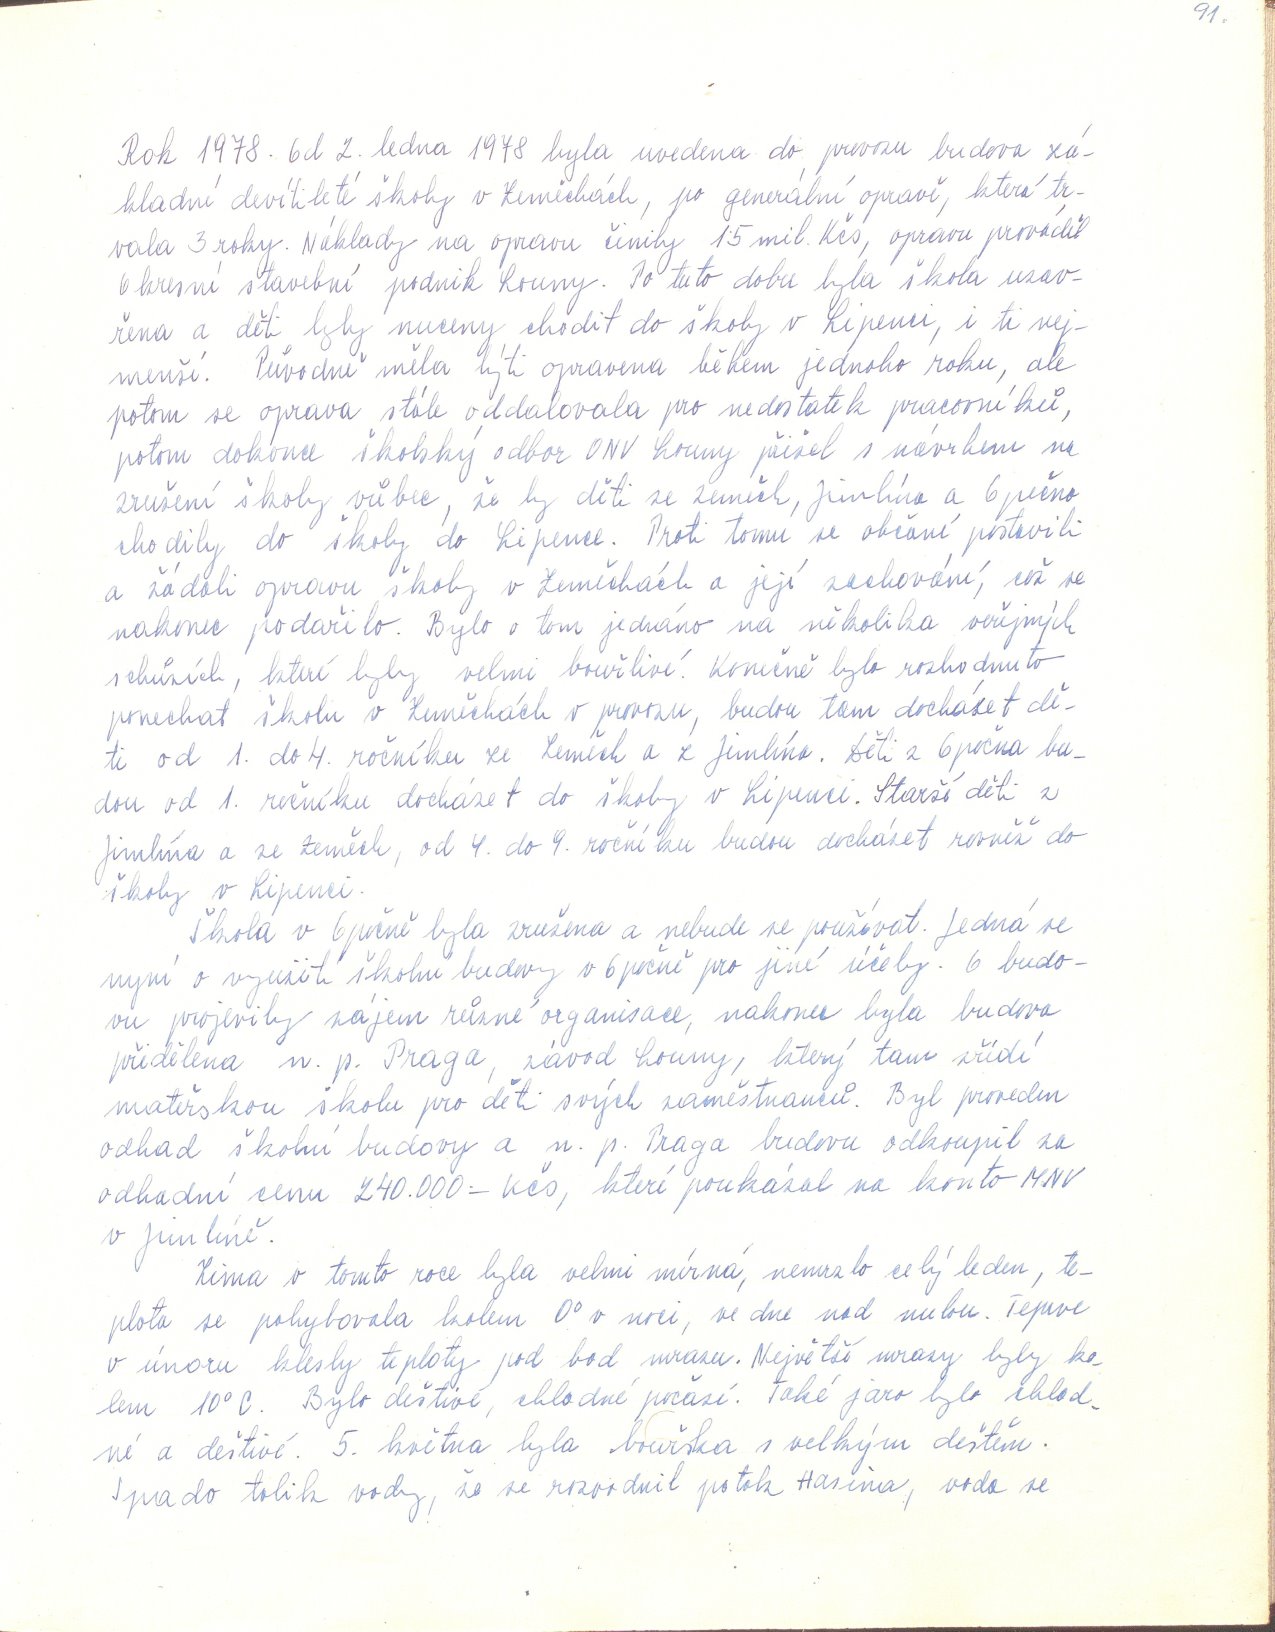 91.
Rok 1978. Od 2. ledna 1978 byla uvedena do provozu budova zá-
kladní devítileté školy v Zeměchách, po generální opravě, která tr-
vala 3 roky. Náklady na opravu činily 1.5 mil. Kčs, opravu prováděl
Okresní stavební podnik Louny. Po tuto dobu byla škola uzav-
řena a děti byly nuceny chodit do školy v Lipenci, i ti nej-
menší. Původně měla býti opravena během jednoho roku, ale
potom se oprava stále oddalovala pro nedostatek pracovníků,
potom dokonce školský odbor ONV Louny přišel s návrhem na
zrušení školy vůbec, že by děti ze Zeměch, Jimlína a Opočna
chodily do školy do Lipence. Proti tomu se občané postavili
a žádali opravu školy v Zeměchách a její zachování, což se
nakonec podařilo. Bylo o tom jednáno na několika veřejných
schůzích, které byly velmi bouřlivé. Konečně bylo rozhodnuto
ponechat školu v Zeměchách v provozu, budou tam docházet dě-
ti od 1. do 4. ročníku ze Zeměch a z Jimlína. Děti z Opočna bu-
dou od 1. ročníku docházet do školy v Lipenci. Starší děti z
Jimlína a ze Zeměch, od 4. do 9. ročníku budou docházet rovněž do
školy v Lipenci.
Škola v Opočně byla zrušena a nebude se používat. Jedná se
nyní o využití školní budovy v Opočně pro jiné účely. O budo-
vu projevily zájem různé organisace, nakonec byla budova
přidělena n. p. Praga, závod Louny, který tam zřídí
mateřskou školu pro děti svých zaměstnanců. Byl proveden
odhad školní budovy a n. p. Praga budovu odkoupil za
odhadní cenu 240.000=Kčs, které poukázal na konto MNV
v Jimlíně.
Zima v tomto roce byla velmi mírná, nemrzlo celý leden, te-
plota se pohybovala kolem 0° v noci, ve dne nad nulou. Teprve
v únoru klesly teploty pod bod mrazu. Největší mrazy byly ko-
lem 10°C. Bylo deštivé, chladné počasí. Také jaro bylo chlad-
né a deštivé. 5. května byla bouřka s velkým deštěm.
Spado tolik vody, že se rozvodnil potok Hasina, voda se